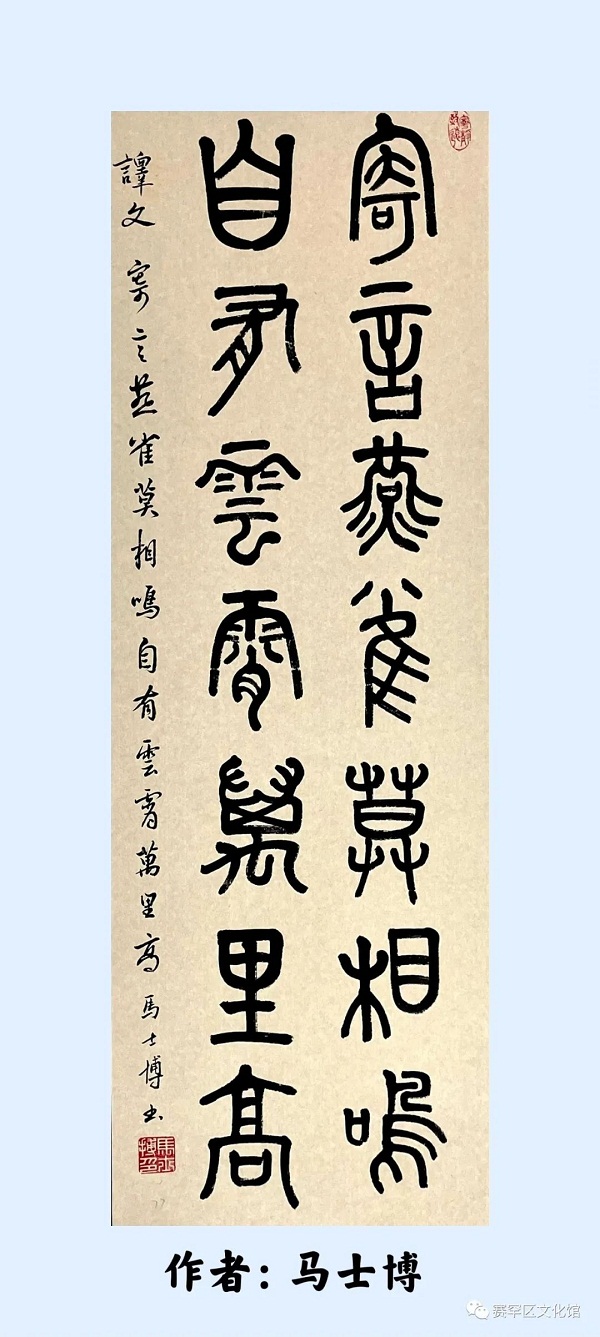 寄言燕雀莫相鳴
自有雲霄萬里高
譯文 寄言燕雀莫相鳴自有雲霄萬里高 馬士博书
作者：马士博
赛罕区文化馆